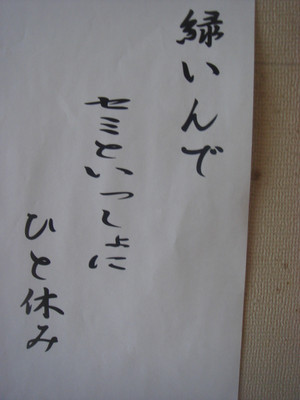 緑いんで
セミといっしょに
ひと休み